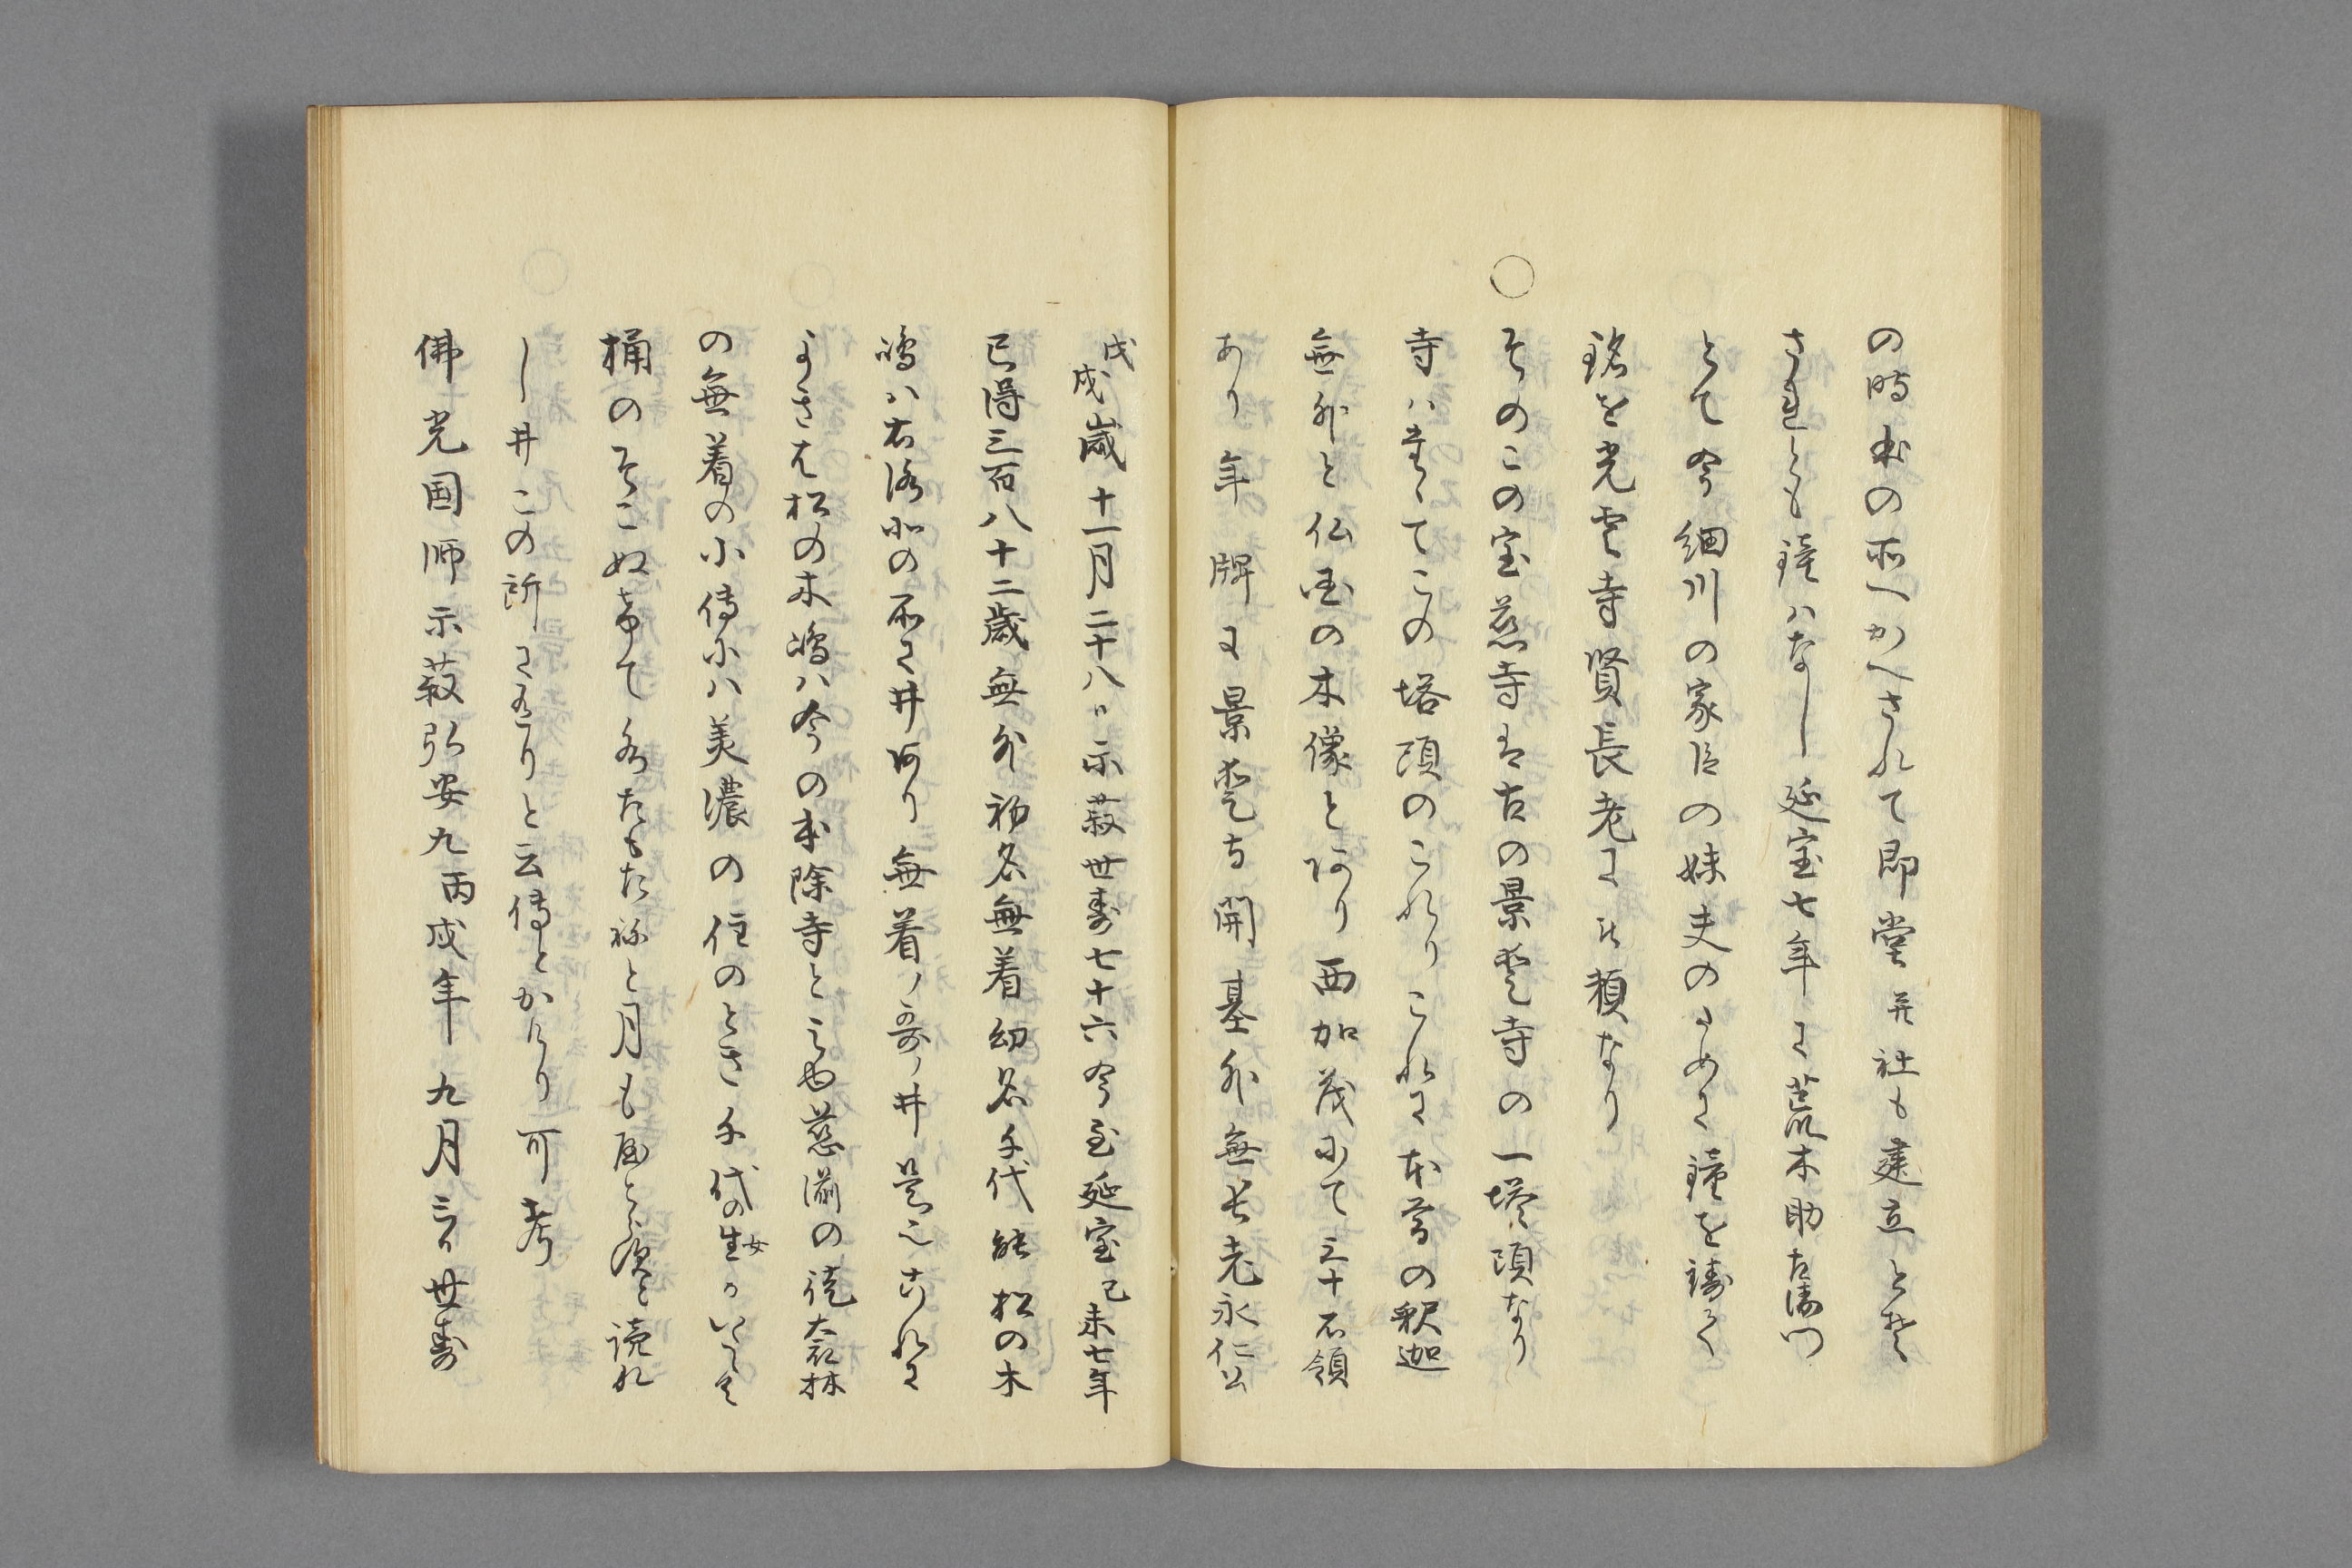 の時本の所へかへされて即堂并社も建立とそ
されとも鐘ハなし延宝七年に荒木助左衛門
とて今細川の家臣の妹夫のために鐘を鋳て
銘を光雲寺賢長老に被頼なり
○そのこの宝慈寺は古の景愛寺の一塔頭なり
寺ハ売てこの塔頭のこれりこれに本尊の釈迦
無外と仏国の木像とあり西加茂にて三十石領
あり年牌に景愛寺開基外無長老永仁公
戊戌歳十一月二十八日示寂世寿七十六今至延宝己未七年
已得三百八十二歳無外初名無着幼名千代能松の木
嶋ハ右流の所に井あり無着ノ哥ノ井是也これに
よき又松の木嶋ハ今の本除寺と云也慈済の徒奈林
の無着の小傳にハ美濃の住のとき千代の生女かいて
桶のそこぬけて水たもたねと月も宿らすと読れ
し井この所に有りと云傳とかけり可考
佛光国師示寂弘安九丙戌年九月三日世寿